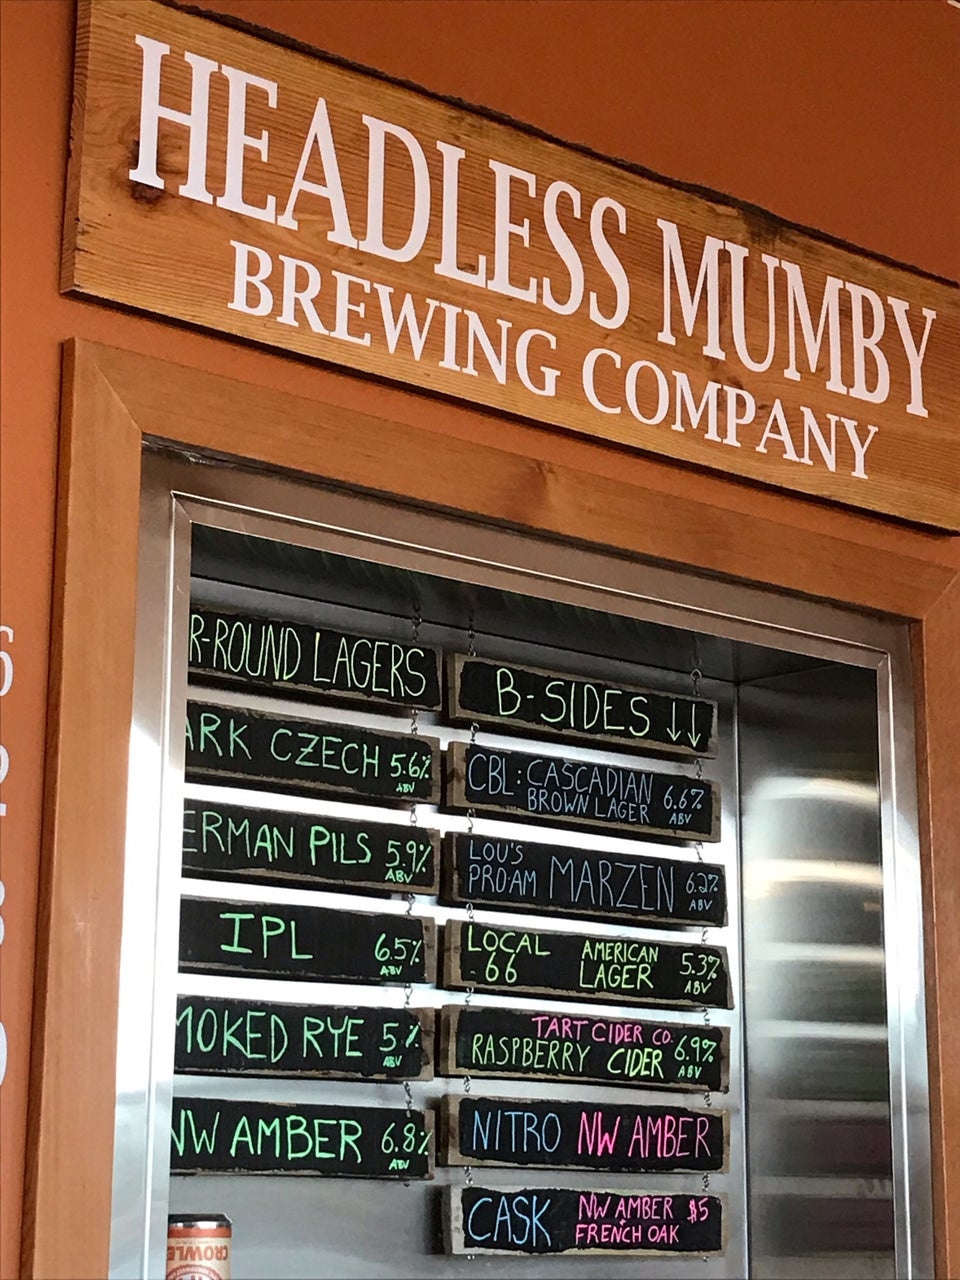 HEADLESS MUMBY
BREWING COMPANY
R-ROUND LAGERS
ARK CZECH 5.6% ABV
ERMAN PILS 5.9% ABV
IPL 6.5% ABV
MOKED RYE 5% ABV
NW AMBER 6.8% ABV
B-SIDES ↓↓
CBL: CASCADIAN
BROWN LAGER 6.6% ABV
LOU'S
PRO-AM MARZEN 6.2% ABV
LOCAL AMERICAN
-66 LAGER 5.3% ABV
TART CIDER CO.
RASPBERRY CIDER 6.9% ABV
NITRO NW AMBER
CASK NW AMBER $5
+
FRENCH OAK
CROWLE